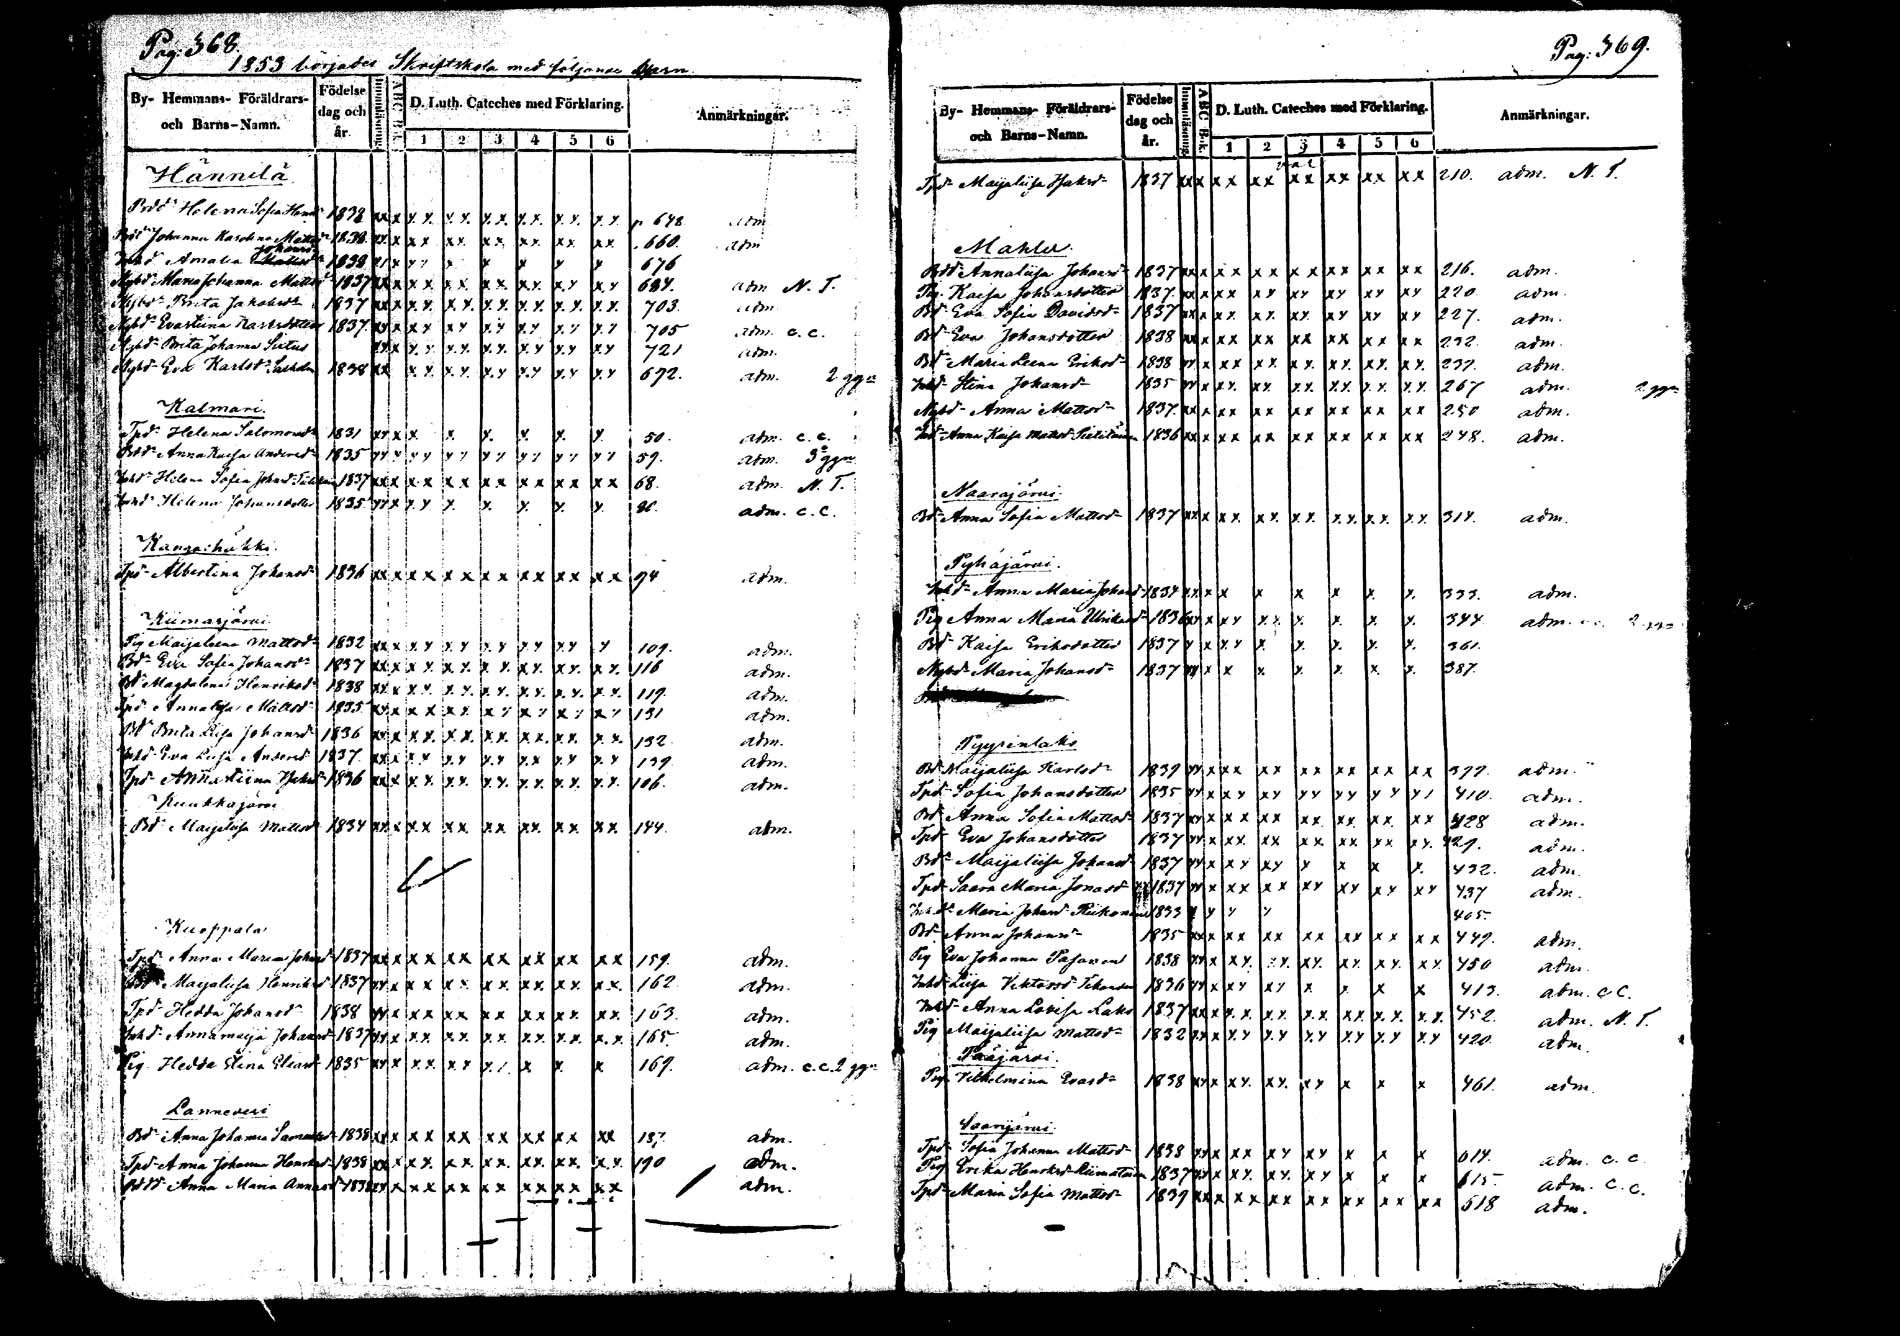 Pag: 368.
1853 börjades Skriftskola med följande Barn
By- Hemmans- Föräldrars- och Barns-Namn. Födelse dag och år. Innanläsning. ABC Bok. D. Luth. Cateches med Förklaring. Anmärkningar.
1 2 3 4 5 6
Hännilä
Helena Sofia 1838 xx x xx xx xx xx xx xx p 648 adm
Johanna Karolina 1838 xx x xx xx xx xx xx xx 660. adm
Amalia 1838 676
Maria Johanna 1837 xx x xx xx xx xx xx xx 684. adm N. T.
Brita Jakobsdr 1837 xx x xx xx xx xx xx xx 703. adm
Evastiina Karlsdotter 1837 xx x xx xx xx xx xx xx 705 adm. c. c.
Brita Johanna Sixtus xx x xx xx xx xx xx xx 721 adm.
Eva Karlsdr 1838 xx xx xx xx xx xx xx 672. adm. 2 ggr
Kalmari.
Tpdr Helena Salomonsdr 1831 xx x x x x x x x 50. adm. c. c.
Anna Kaisa Andersdr 1835 xx x xx xx xx xx xx xx 59. adm. 3 ggr
Inhdr Helena Sofia 1837 xx x xx xx xx xx xx xx 68. adm. N. T.
Inhdr Helena Johansdotter 1835 xx x xx x x x x x adm. c. c.
Kangashäkki.
Tpdr Albertina Johansdr 1836 xx x xx xx xx xx xx xx 94 adm.
Kiimasjärvi
Pig Maijaleena Mattsdr 1832 xx x xx xx xx xx xx x 109. adm.
Bdr Eva Sofia Johansdr 1837 xx x xx xx xx xx xx xx 116 adm.
Bdr Magdalena Henriksdr 1838 xx x xx xx xx xx xx xx 119. adm.
Tpdr Annaliisa Mattsdr 1835 xx x xx xx xx xx xx xx 131 adm.
Bdr Brita Lisa Johansdr 1836 xx x xx xx xx xx xx xx 132. adm.
Inhdr Eva Lisa Andersdr 1837. xx x xx xx xx xx xx xx 139. adm.
Tpdr Annastiina 1836 xx x xx xx xx xx xx xx 106. adm.
Kuukkajärvi
Bdr Maijaliisa Mattsdr 1834 xx x xx xx xx xx xx xx 144. adm.
Kuoppala
Tpdr Anna Maria 1837 xx x xx xx xx xx xx xx 159. adm.
Maijaliisa Henriksdr 1837 xx x xx xx xx xx xx xx 162. adm.
Tpdr Hedda Johansdr 1838 xx x xx xx xx xx xx xx 163. adm.
Inhdr Annamaija Johansdr 1837 xx x xx xx xx xx xx xx 165. adm.
Pig Hedda Stina 1835 xx x xx xx xx x x x 169. adm. c. c. 2 ggr
Lannevesi
Bdr Anna Johanna 1838 xx x xx xx xx xx xx xx 187. adm.
Tpdr Anna Johanna Henriksdr 1838 xx x xx xx xx xx xx xx 190 adm.
Anna Maria 1838 xx x xx xx xx xx xx xx adm.
Pag: 369.
By- Hemmans- Föräldrars- och Barns-Namn. Födelse dag och år. Innanläsning. ABC Bok. D. Luth. Cateches med Förklaring. Anmärkningar.
1 2 3 4 5 6
Tpdr Maijaliisa 1837 xx x xx xx xx xx xx xx 210. adm. N. T.
Mahlu.
Annaliisa Johansdr 1837 xx x xx xx xx xx xx xx 216. adm.
Pig. Kaisa Johansdotter 1837. xx x xx xx xx xx xx xx 220. adm.
Bdr Eva Sofia Davidsdr 1837 xx x xx xx xx xx xx xx 227. adm.
Bdr Eva Johansdotter 1838 xx x xx xx xx xx xx xx 232. adm.
Bdr Maria Leena Eriksdr 1838 xx x xx xx xx xx xx xx 237. adm.
Inhdr Stina Johansdr 1835 xx x xx xx xx xx xx xx 267 adm. 2 ggr
Anna Mattsdr 1837. xx x xx xx xx xx xx xx 250 adm.
Anna Kaisa Mattsdr 1836 xx x xx xx xx xx xx xx 248. adm.
Naarajärvi
Bdr Anna Sofia Mattsdr 1837 xx x xx xx xx xx xx xx 314. adm.
Pyhäjärvi.
Inhdr Anna Maria Johansdr 1834 xx x x x x x x x 333. adm.
Pig Anna Maria Ulriksdr 1836 xx x xx xx x x x x 344 adm.
Bdr Kaisa Eriksdotter 1837 x x xx x x x x x 361.
Maria Johansdr 1837 xx x x x x x x x 387.
Pyyrinlaks
Bdr Maijaliisa Karlsdr 1839 xx x xx xx xx xx xx xx 399. adm.
Tpdr Sofia Johansdotter 1835 xx x xx xx xx xx xx xx 410. adm.
Bdr Anna Sofia Mattsdr 1837 xx x xx xx xx xx xx xx 428 adm.
Tpdr Eva Johansdotter 1837 xx x xx xx xx xx xx xx 429. adm.
Bdr Maijaliisa Johansdr 1837 xx x xx xx x x x x 432. adm.
Tpdr Saara Maria Jonasdr 1837 xx x xx xx xx xx xx xx 437 adm.
Maria Johansdr 1833 x x x x 405
Bdr Anna Johansdr 1835 xx x xx xx xx xx xx xx 449. adm.
Pig Eva Johanna Pasanen 1838 xx x xx xx xx xx xx xx 450 adm.
Inhdr Liisa 1836 xx x xx xx x x x x 413. adm. c C.
Inhdr Anna Lovisa Laks 1837 xx x xx xx xx xx xx xx 452. adm. N. T.
Pig Maijaliisa Mattsdr 1832 xx x xx xx xx xx xx xx 420. adm.
Pääjärvi.
Pig. Vilhelmina Evasdr 1838 xx x xx xx xx x x x 461. adm.
Saarijärvi
Tpdr Sofia Johanna Mattsdr 1838 xx x xx xx xx x x x 614. adm. c. c.
Pig Erika Henriksdr 1837 xx x xx xx xx x x x 615 adm. c. c.
Tpdr Maria Sofia Mattsdr 1839 xx x xx xx xx xx xx xx 618 adm.